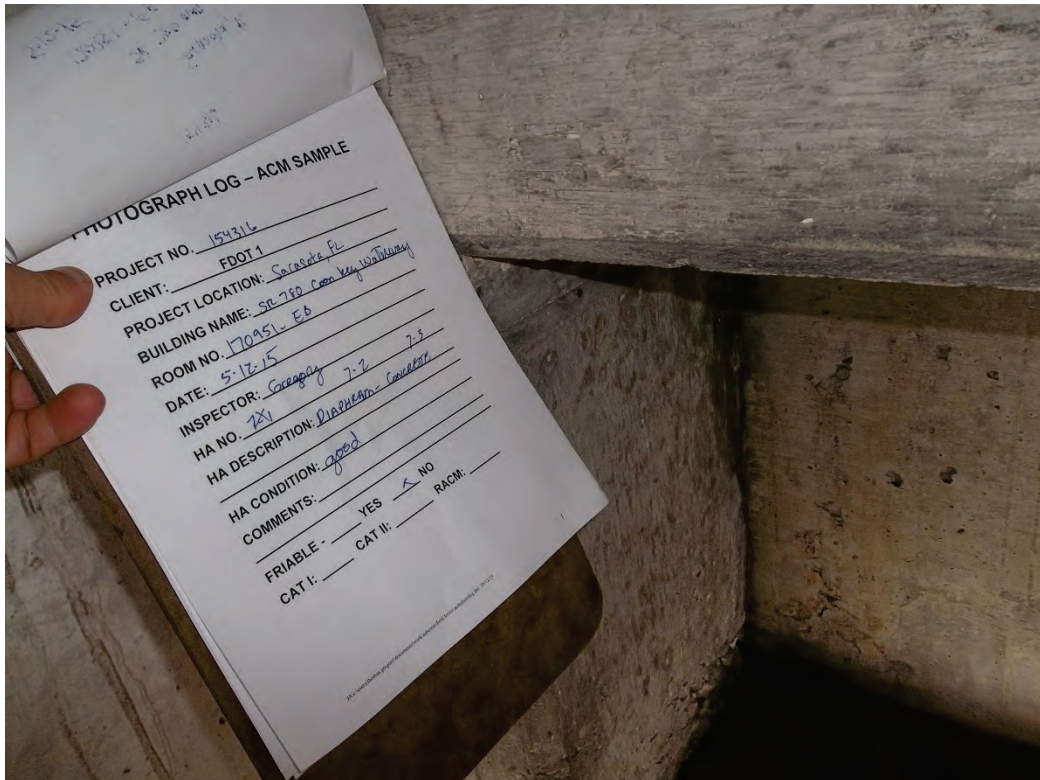 PHOTOGRAPH LOG – ACM SAMPLE
PROJECT NO. 154316
CLIENT: FDOT 1
PROJECT LOCATION: Sarasota, FL
BUILDING NAME: SR 780 Coon Key Waterway
ROOM NO. 170951 - EB
DATE: 5-12-15
INSPECTOR: Gregory
HA NO. 7-2 7-3
HA DESCRIPTION: DIAPHRAM - CONCRETE
HA CONDITION: good
COMMENTS:
FRIABLE - YES x NO
CAT I: CAT II: RACM: